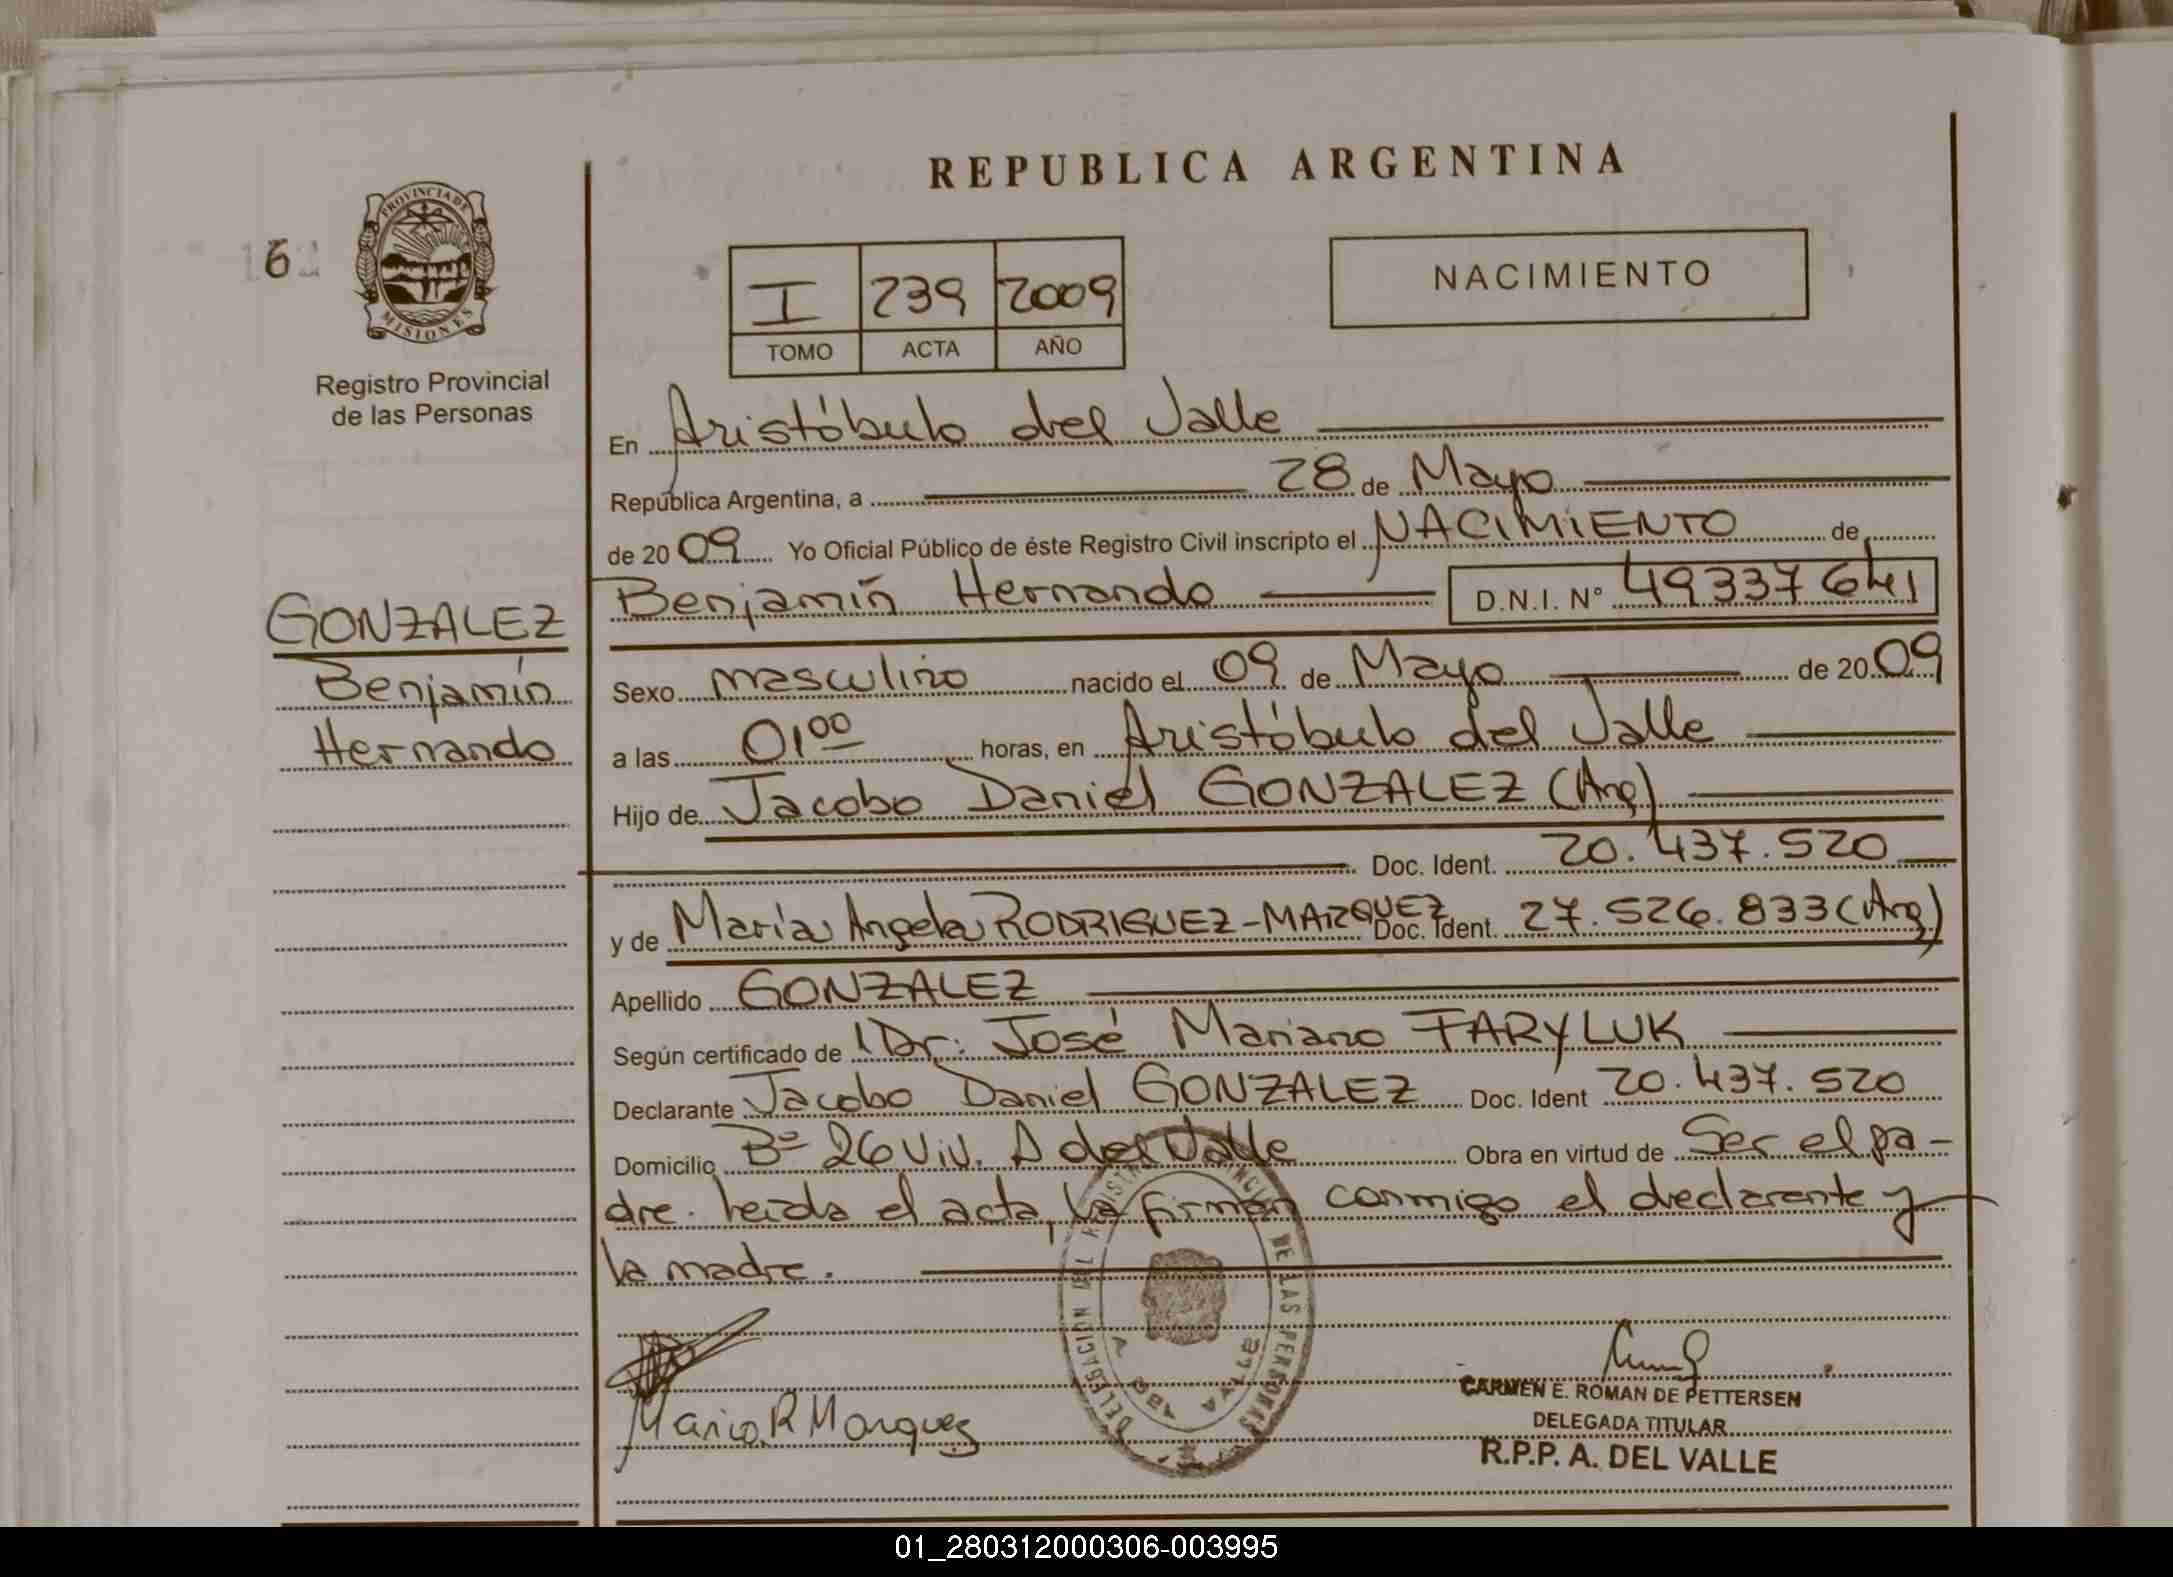 REPUBLICA ARGENTINA
PROVINCIA DE
MISIONES
6
Registro Provincial
de las Personas
I 239 2009
TOMO ACTA AÑO
NACIMIENTO
En Aristóbulo del Valle
República Argentina, a 28 de Mayo
de 2009 Yo Oficial Público de éste Registro Civil inscripto el NACIMIENTO de
Benjamín Hernando D.N.I. N° 49337641
GONZALEZ
Benjamín
Hernando
Sexo masculino nacido el 09 de Mayo de 2009
a las 01⁰⁰ horas, en Aristóbulo del Valle
Hijo de Jacobo Daniel GONZALEZ (Arg)
Doc. Ident. 20.437.520
y de María Angela RODRIGUEZ-MARQUEZ Doc. Ident. 27.526.833 (Arg)
Apellido GONZALEZ
Según certificado de Dr. José Mariano FARYLUK
Declarante Jacobo Daniel GONZALEZ Doc. Ident 20.437.520
Domicilio Bº 26 Viv. A del Valle Obra en virtud de Ser el pa-
dre. Leída el acta, la firman conmigo el declarante y
la madre.
DELEGACION DEL REGISTRO PROVINCIAL DE LAS PERSONAS
Maria R Marquez
CARMEN E. ROMAN DE PETTERSEN
DELEGADA TITULAR
R.P.P. A. DEL VALLE
01_280312000306-003995